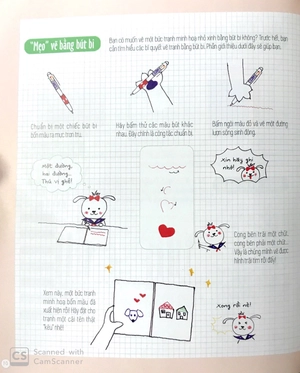 "Mẹo" vẽ bằng bút bi
Bạn có muốn vẽ một bức tranh minh hoạ nhỏ xinh bằng bút bi không? Trước hết, bạn
cần tìm hiểu các bí quyết vẽ tranh bằng bút bi. Phần giới thiệu dưới đây sẽ giúp bạn.
Chuẩn bị một chiếc bút bi
bốn màu ra mực trơn tru.
Hãy bấm thử các màu bút khác
nhau. Đây chính là công tắc chuẩn bị.
Bấm ngòi màu đỏ và vẽ một đường
lượn sóng sinh động.
Một đường,
hai đường...
Thú vị ghê!
Xin hãy ghi
nhớ!
Cong bên trái một chút,
cong bên phải một chút...
Vậy là chúng mình vẽ được
hình trái tim rồi đấy!
Xem này, một bức tranh
minh hoạ bốn màu đã
xuất hiện rồi! Hãy đặt cho
tranh một cái tên thật
"kêu" nhé!
Xong rồi nè!
CS Scanned with
CamScanner